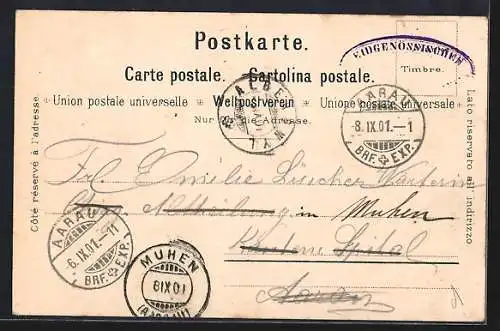 Postkarte.
EIDGENÖSSISCHES
Carte postale. Cartolina postale.
Timbre.
Union postale universelle Weltpostverein Unione postale universale
Nur für die Adresse.
Côté réservé à l'adresse.
Lato riservato all' indirizzo
AARAU
-8.IX.01.-1
BRF. EXP.
Frl. Emilie Lüscher Wärterin
Abtheilung in Muhen
Kantons Spital
Aarau
AARAU
-6.IX.01.-11
BRF. EXP.
MUHEN
8 IX 01
(AARGAU)